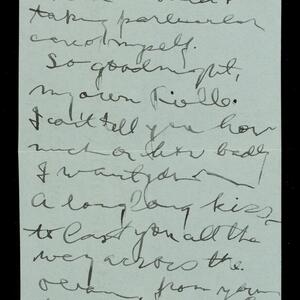 taking particular
care of myself.
So goodnight,
my own
I can't tell you how
much or how badly
I want you
A long long kiss
to last you all the
way across the
ocean, from your